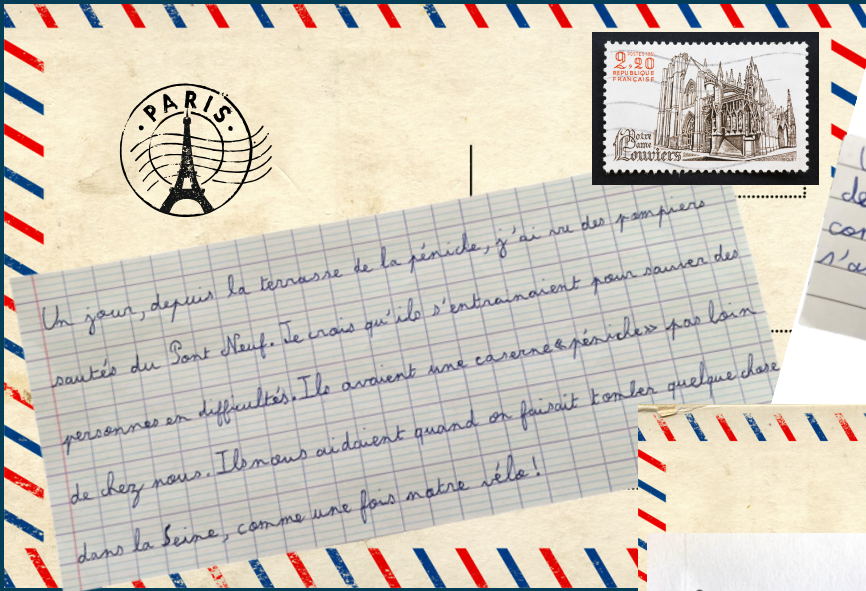 PARIS
2,20
REPUBLIQUE
FRANÇAISE
Notre
Dame
Louviers
Un jour, depuis la terrasse de la péniche, j'ai vu des pompiers
sautés du Pont Neuf. Je crois qu'ils s'entrainaient pour sauver des
personnes en difficultés. Ils avaient une caserne «péniche» pas loin
de chez nous. Ils nous aidaient quand on faisait tomber quelque chose
dans la Seine, comme une fois notre vélo!
de
con
s'a